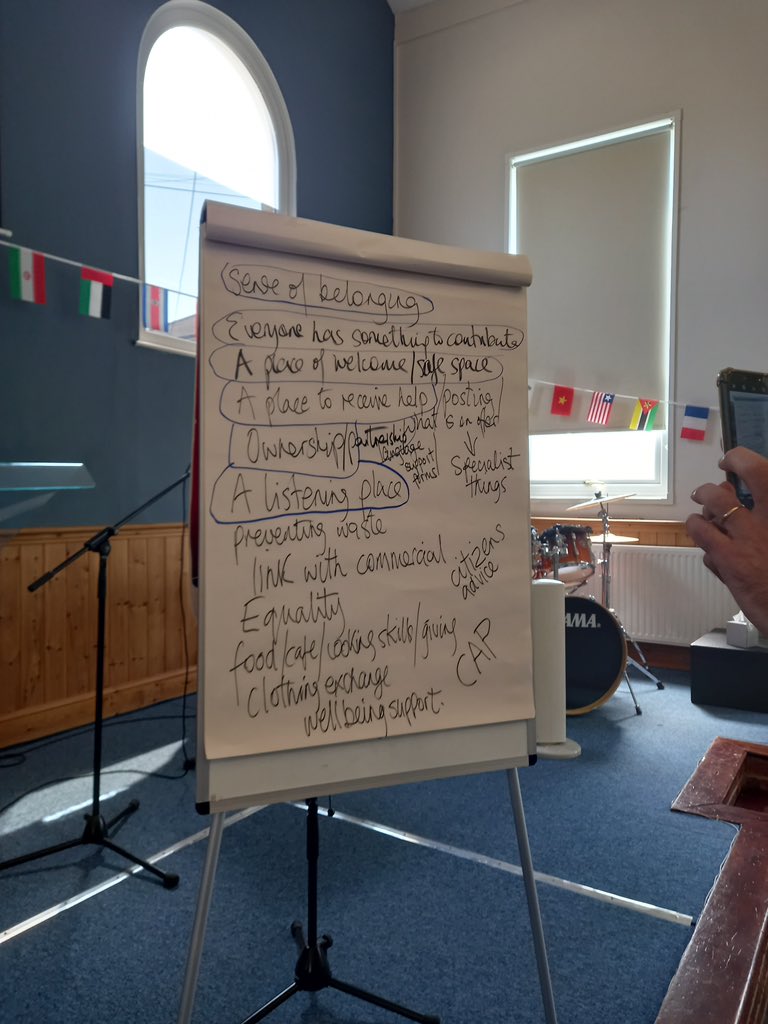 Sense of belonging
Everyone has something to contribute
A place of welcome/safe space
A place to receive help/posting/
what is on offer
Ownership/partnership
language
support
Specialist
things
A listening place
preventing waste
link with commercial
citizens
advice
Equality
food/cafe/cooking skills/giving
CAP
clothing exchange
wellbeing support.
AMA.